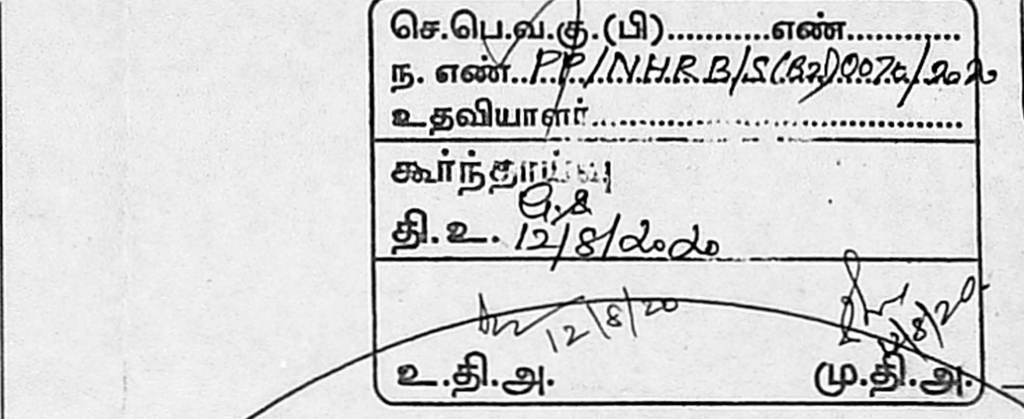 செ.பெ.வ.கு.(பி)...........எண்............
ந. எண்..PP/N.H.R.B/S(B2)0070/2020
உதவியாளர்.......................................
கூர்ந்தாய்வு
தி.உ. 12/8/2020
12/8/20
உ.தி.அ. மு.தி.அ.